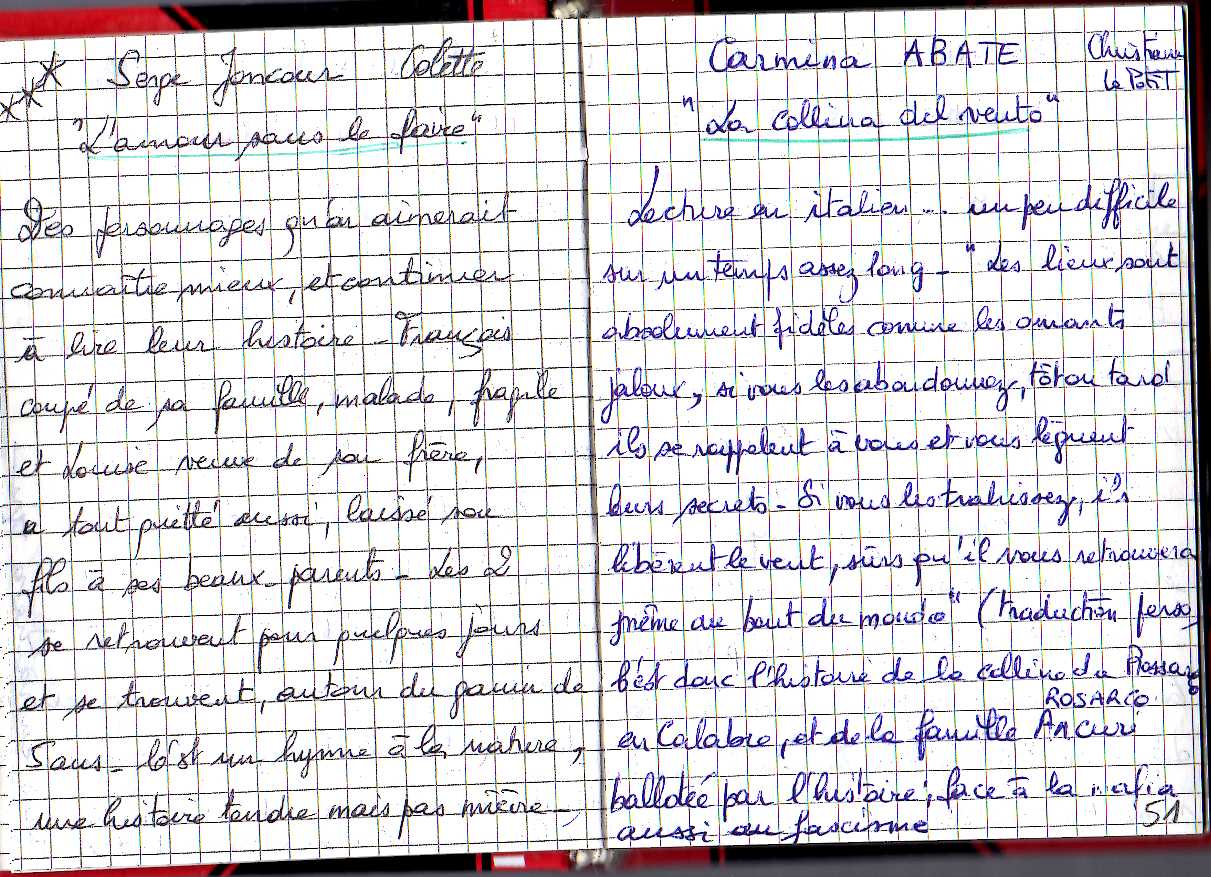 Serge Joncour Colette
"L'amour sans le faire"
Des personnages qu'on aimerait
connaître mieux, et continuer
à lire leur histoire - François
coupé de sa famille, malade, fragile
et Louise veuve de son frère,
a tout quitté aussi, laissé son
fils à ses beaux-parents - Les 2
se retrouvent pour quelques jours
et se trouvent, autour du gamin de
5 ans - C'est un hymne à la nature,
une histoire tendre mais pas mièvre -
Carmina ABATE Christiane
Le Petit
"La collina del vento"
Lecture en italien... un peu difficile
sur un temps assez long - "Les lieux sont
absolument fidèles comme les amants
jaloux, si vous les abandonnez, tôt ou tard
ils se rappelent à vous et vous lèguent
leurs secrets - Si vous les trahissez, ils
libèrent le vent, sûrs qu'il vous retrouvera
même au bout du monde" (traduction perso)
C'est donc l'histoire de la colline du
ROSARCO
en Calabre, et de la famille Arcuri
ballotée par l'histoire, face à la mafia
aussi au fascisme
51